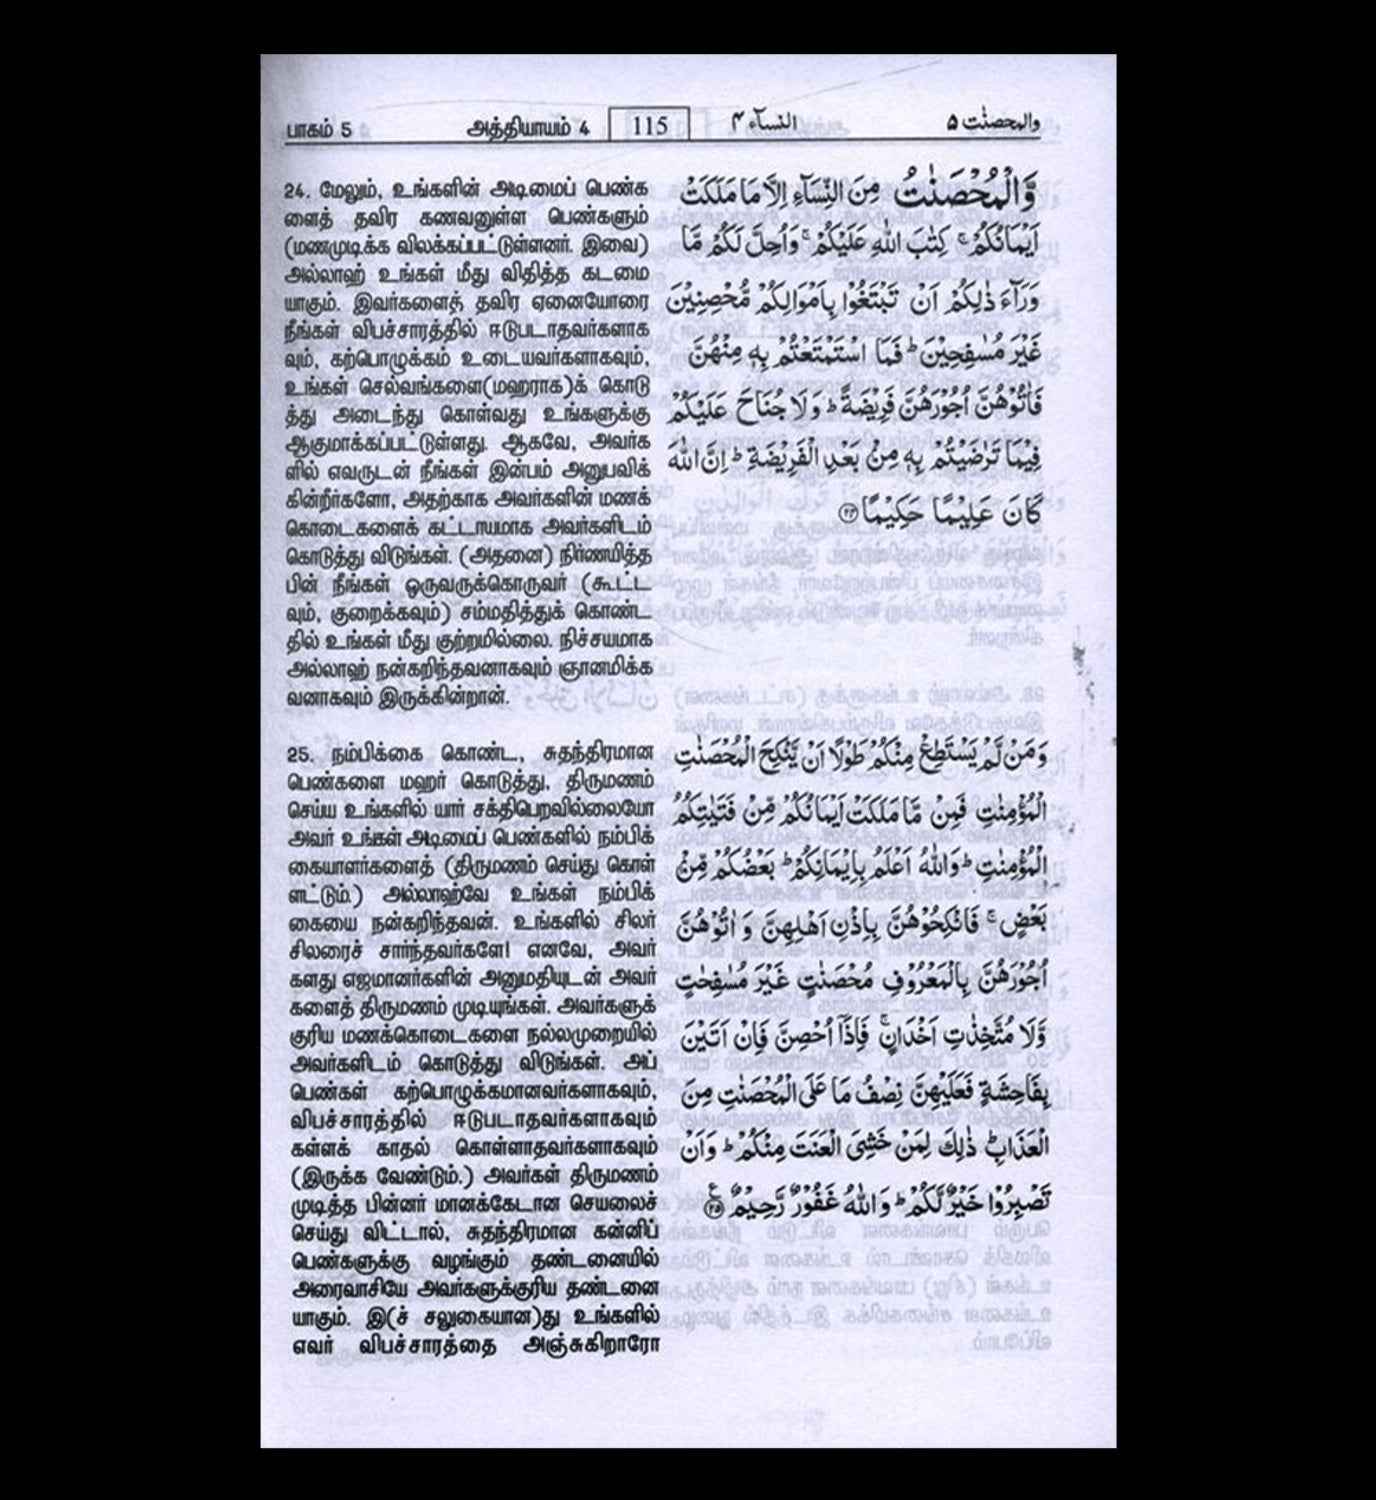 பாகம் 5 அத்தியாயம் 4 115 النسآء ٤ والمحصنٰت ٥
24. மேலும், உங்களின் அடிமைப் பெண்க
ளைத் தவிர கணவனுள்ள பெண்களும்
(மணமுடிக்க விலக்கப்பட்டுள்ளனர். இவை)
அல்லாஹ் உங்கள் மீது விதித்த கடமை
யாகும். இவர்களைத் தவிர ஏனையோரை
நீங்கள் விபச்சாரத்தில் ஈடுபடாதவர்களாக
வும், கற்பொழுக்கம் உடையவர்களாகவும்,
உங்கள் செல்வங்களை(மஹராக)க் கொடு
த்து அடைந்து கொள்வது உங்களுக்கு
ஆகுமாக்கப்பட்டுள்ளது. ஆகவே, அவர்க
ளில் எவருடன் நீங்கள் இன்பம் அனுபவிக்
கின்றீர்களோ, அதற்காக அவர்களின் மணக்
கொடைகளைக் கட்டாயமாக அவர்களிடம்
கொடுத்து விடுங்கள். (அதனை) நிர்ணயித்த
பின் நீங்கள் ஒருவருக்கொருவர் (கூட்ட
வும், குறைக்கவும்) சம்மதித்துக் கொண்ட
தில் உங்கள் மீது குற்றமில்லை. நிச்சயமாக
அல்லாஹ் நன்கறிந்தவனாகவும் ஞானமிக்க
வனாகவும் இருக்கின்றான்.
وَّالْمُحْصَنٰتُ مِنَ النِّسَآءِ اِلَّا مَا مَلَكَتْ
اَيْمَانُكُمْ ۚ كِتٰبَ اللّٰهِ عَلَيْكُمْ ۚ وَاُحِلَّ لَكُمْ مَّا
وَرَآءَ ذٰلِكُمْ اَنْ تَبْتَغُوْا بِاَمْوَالِكُمْ مُّحْصِنِيْنَ
غَيْرَ مُسٰفِحِيْنَ ؕ فَمَا اسْتَمْتَعْتُمْ بِهٖ مِنْهُنَّ
فَاٰتُوْهُنَّ اُجُوْرَهُنَّ فَرِيْضَةً ؕ وَلَا جُنَاحَ عَلَيْكُمْ
فِيْمَا تَرٰضَيْتُمْ بِهٖ مِنْۢ بَعْدِ الْفَرِيْضَةِ ؕ اِنَّ اللّٰهَ
كَانَ عَلِيْمًا حَكِيْمًا ﴿۲۴﴾
25. நம்பிக்கை கொண்ட, சுதந்திரமான
பெண்களை மஹர் கொடுத்து, திருமணம்
செய்ய உங்களில் யார் சக்திபெறவில்லையோ
அவர் உங்கள் அடிமைப் பெண்களில் நம்பிக்
கையாளர்களைத் (திருமணம் செய்து கொள்
ளட்டும்.) அல்லாஹ்வே உங்கள் நம்பிக்
கையை நன்கறிந்தவன். உங்களில் சிலர்
சிலரைச் சார்ந்தவர்களே! எனவே, அவர்
களது எஜமானர்களின் அனுமதியுடன் அவர்
களைத் திருமணம் முடியுங்கள். அவர்களுக்
குரிய மணக்கொடைகளை நல்லமுறையில்
அவர்களிடம் கொடுத்து விடுங்கள். அப்
பெண்கள் கற்பொழுக்கமானவர்களாகவும்,
விபச்சாரத்தில் ஈடுபடாதவர்களாகவும்
கள்ளக் காதல் கொள்ளாதவர்களாகவும்
(இருக்க வேண்டும்.) அவர்கள் திருமணம்
முடித்த பின்னர் மானக்கேடான செயலைச்
செய்து விட்டால், சுதந்திரமான கன்னிப்
பெண்களுக்கு வழங்கும் தண்டனையில்
அரைவாசியே அவர்களுக்குரிய தண்டனை
யாகும். இ(ச் சலுகையான)து உங்களில்
எவர் விபச்சாரத்தை அஞ்சுகிறாரோ
وَمَنْ لَّمْ يَسْتَطِعْ مِنْكُمْ طَوْلًا اَنْ يَّنْكِحَ الْمُحْصَنٰتِ
الْمُؤْمِنٰتِ فَمِنْ مَّا مَلَكَتْ اَيْمَانُكُمْ مِّنْ فَتَيٰتِكُمُ
الْمُؤْمِنٰتِ ؕ وَاللّٰهُ اَعْلَمُ بِاِيْمَانِكُمْ ؕ بَعْضُكُمْ مِّنْۢ
بَعْضٍ ۚ فَانْكِحُوْهُنَّ بِاِذْنِ اَهْلِهِنَّ وَ اٰتُوْهُنَّ
اُجُوْرَهُنَّ بِالْمَعْرُوْفِ مُحْصَنٰتٍ غَيْرَ مُسٰفِحٰتٍ
وَّلَا مُتَّخِذٰتِ اَخْدَانٍ ۚ فَاِذَاۤ اُحْصِنَّ فَاِنْ اَتَيْنَ
بِفَاحِشَةٍ فَعَلَيْهِنَّ نِصْفُ مَا عَلَى الْمُحْصَنٰتِ مِنَ
الْعَذَابِ ؕ ذٰلِكَ لِمَنْ خَشِىَ الْعَنَتَ مِنْكُمْ ؕ وَاَنْ
تَصْبِرُوْا خَيْرٌ لَّكُمْ ؕ وَاللّٰهُ غَفُوْرٌ رَّحِيْمٌ ﴿۲۵﴾ ع